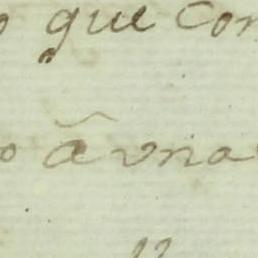 o que Con
o â vna